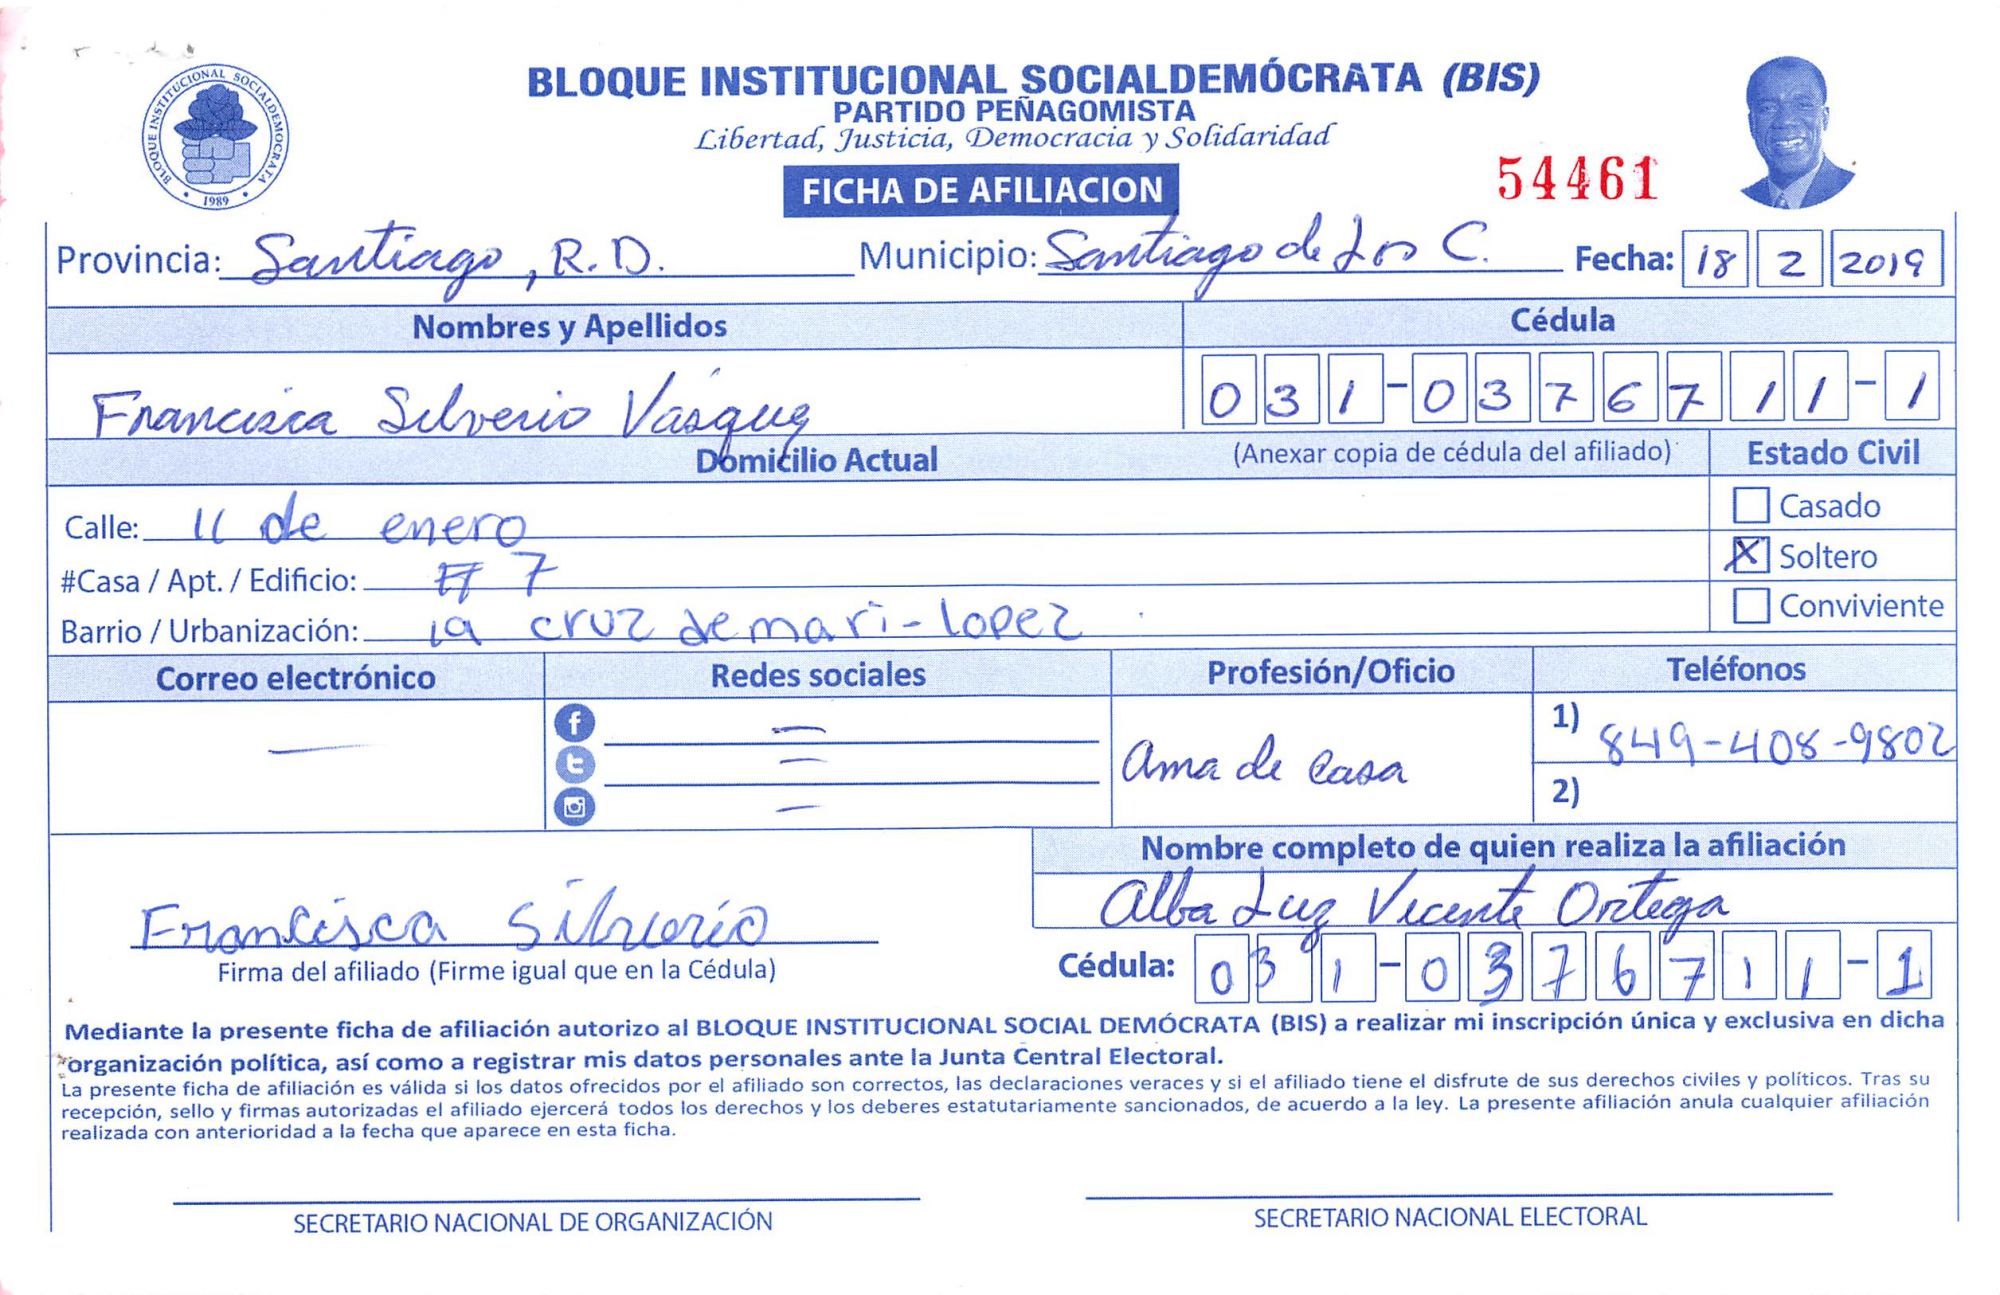 BLOQUE INSTITUCIONAL SOCIALDEMÓCRATA (BIS)
PARTIDO PEÑAGOMISTA
Libertad, Justicia, Democracia y Solidaridad
BLOQUE INSTITUCIONAL SOCIALDEMOCRATA
1989
FICHA DE AFILIACION
54461
Provincia: Santiago, R.D. Municipio: Santiago de Los C. Fecha: 18 2 2019
Nombres y Apellidos Cédula
Francisca Silverio Vásquez 031-0376711-1
Domicilio Actual (Anexar copia de cédula del afiliado) Estado Civil
Calle: 11 de enero Casado
#Casa / Apt. / Edificio: # 7 X Soltero
Barrio / Urbanización: la cruz de mari-lopez Conviviente
Correo electrónico Redes sociales Profesión/Oficio Teléfonos
— — Ama de casa 1) 849-408-9802
—
— 2)
Nombre completo de quien realiza la afiliación
Alba Luz Vicente Ortega
Francisca Silverio
Firma del afiliado (Firme igual que en la Cédula) Cédula: 031-0376711-1
Mediante la presente ficha de afiliación autorizo al BLOQUE INSTITUCIONAL SOCIAL DEMÓCRATA (BIS) a realizar mi inscripción única y exclusiva en dicha
organización política, así como a registrar mis datos personales ante la Junta Central Electoral.
La presente ficha de afiliación es válida si los datos ofrecidos por el afiliado son correctos, las declaraciones veraces y si el afiliado tiene el disfrute de sus derechos civiles y políticos. Tras su
recepción, sello y firmas autorizadas el afiliado ejercerá todos los derechos y los deberes estatutariamente sancionados, de acuerdo a la ley. La presente afiliación anula cualquier afiliación
realizada con anterioridad a la fecha que aparece en esta ficha.
SECRETARIO NACIONAL DE ORGANIZACIÓN SECRETARIO NACIONAL ELECTORAL